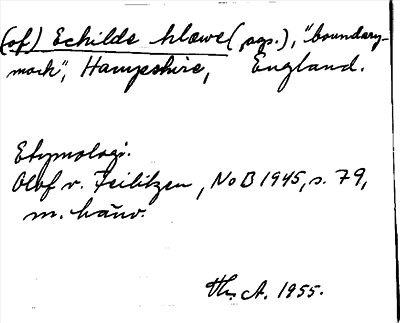 (of) Echilde hlæwe (pgs.), "boundary-
mark", Hampshire, England.
Etymologi.
Olof v. Feilitzen, NoB 1945, s. 79,
m. hänv.
Th. A. 1955.